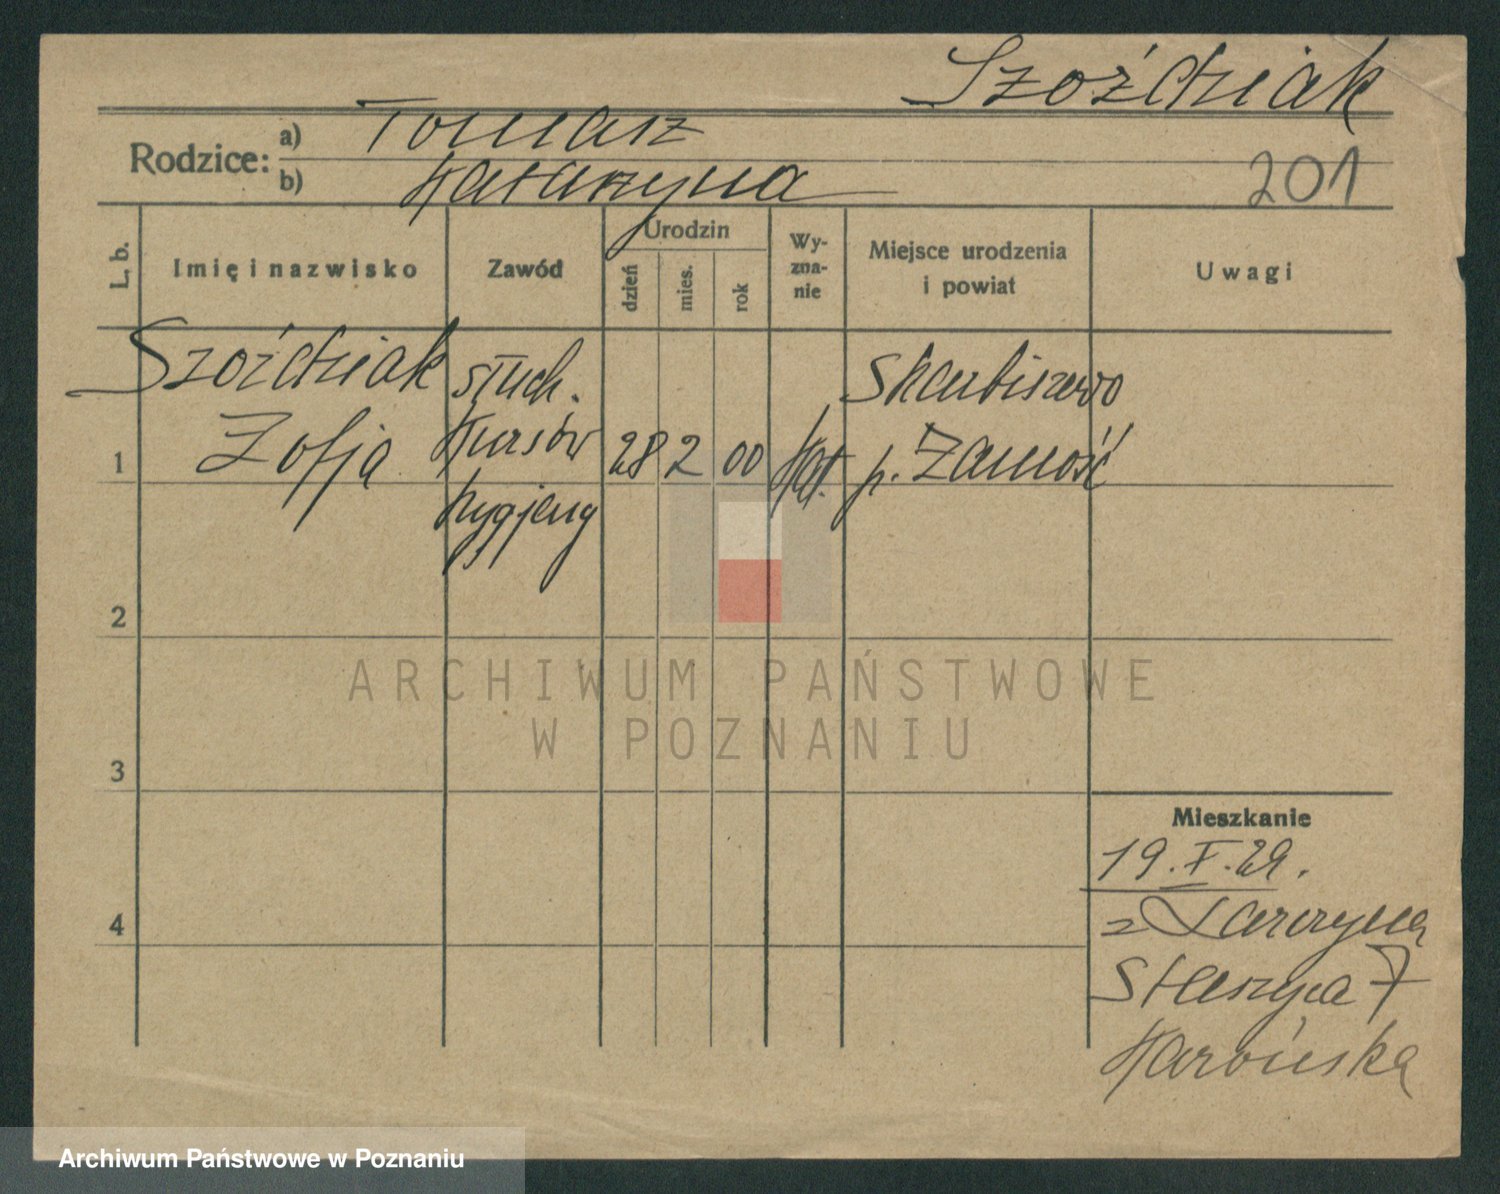 Szoździak
Rodzice: a) Tomasz
b) Katarzyna
201
L. b.
Imię i nazwisko
Zawód
Urodzin
dzień
mies.
rok
Wy-
zna-
nie
Miejsce urodzenia
i powiat
Uwagi
1
Szoździak
Zofja
słuch.
Kursów
hygjeny
28 2 00
Kat.
Skarbiszewo
p. Zamość
2
3
4
Mieszkanie
19.X.29.
z
Staszyca 7
ARCHIWUM PAŃSTWOWE
W POZNANIU
Archiwum Państwowe w Poznaniu